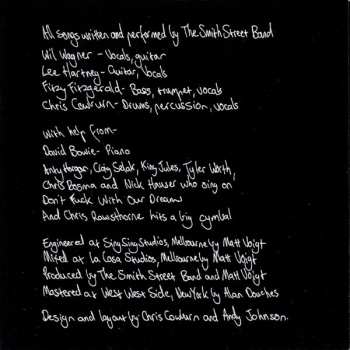 All songs written and performed by The Smith Street Band
Wil Wagner - Vocals, guitar
Lee Hartney - Guitar, vocals
Fitzy Fitzgerald - Bass, trumpet, vocals
Chris Cowburn - Drums, percussion, vocals
With help from -
David Bowie - Piano
Andy Horgan, Craig Selak, King Jules, Tyler Worth,
Chris Bosma and Nick Hauser who sing on
Don't Fuck With Our Dreams
And Chris Rawsthorne hits a big cymbal
Engineered at Sing Sing Studios, Melbourne by Matt Voigt
Mixed at La Cosa Studios, Melbourne by Matt Voigt
Produced by The Smith Street Band and Matt Voigt
Mastered at West West Side, New York by Alan Douches
Design and layout by Chris Cowburn and Andy Johnson.